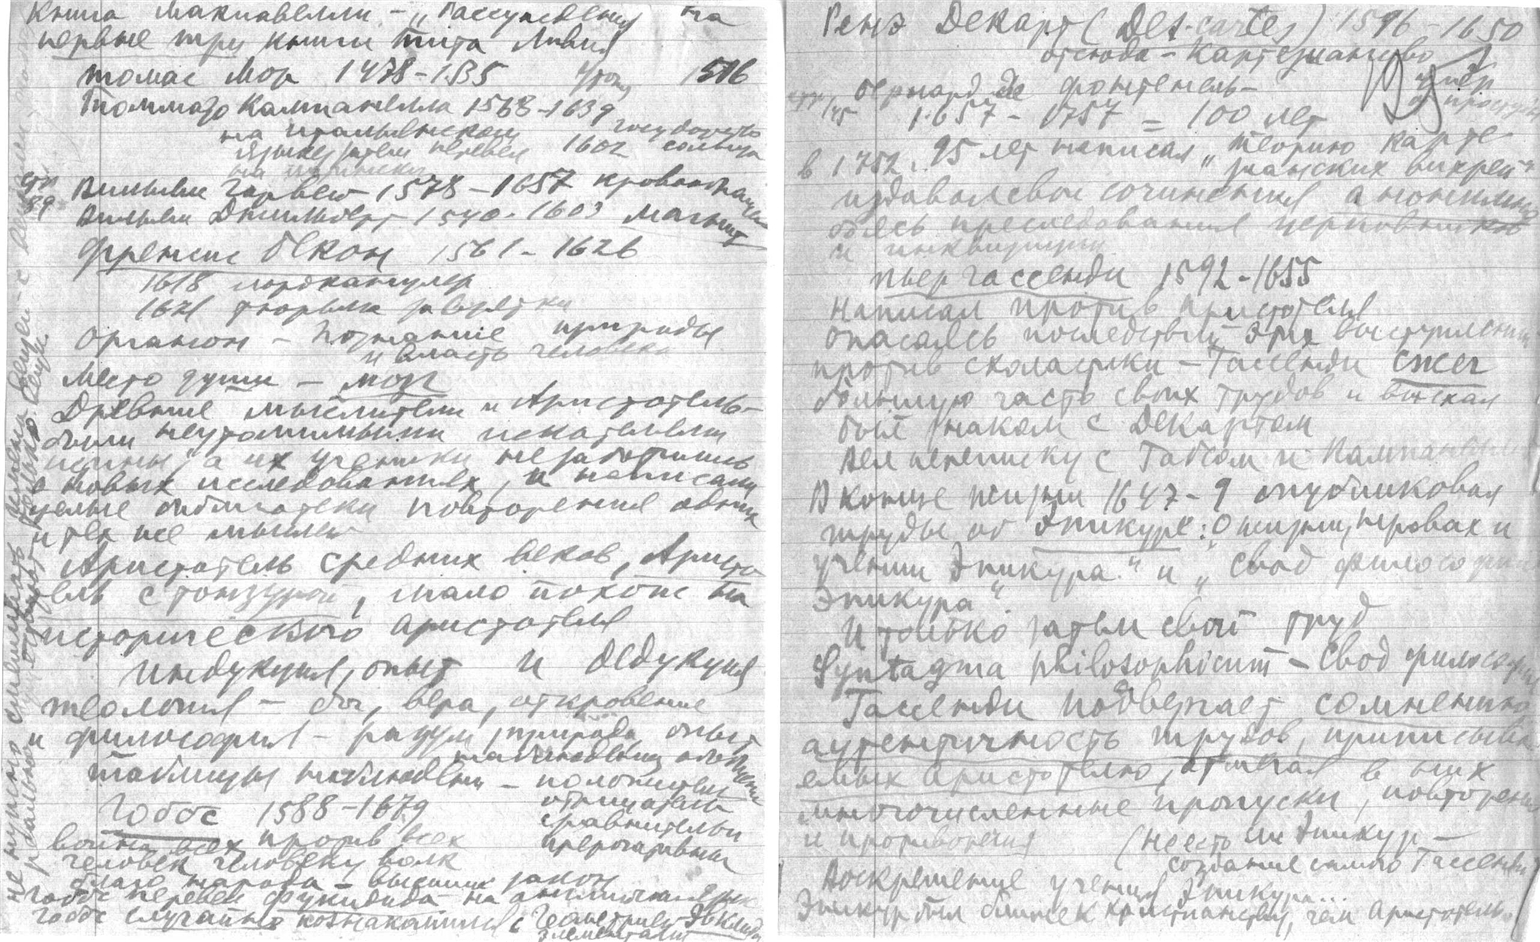 Книга Макиавелли - „Рассуждения на
первые три книги Тита Ливия
Томас Мор 1478-1535 Утоп 1516
Томмазо Кампанелла 1568-1639
на итальянском государство
языке затем перевел 1602 солнца
на латинский
Вильям Гарвей 1578-1657 кровообращ
Вильям Джильберт 1540-1603 магнит
Френсис Бекон 1561-1626
1618 лордканцлер
1621 тюрьма за взятки
Органон - Познание природы
и власть человека
Место души - мозг
Древние мыслители и Аристотель-
были неутомимыми искателями
истины, а их ученики не заботились
о новых исследованиях, и написали
целые библиотеки повторения одних
и тех же мыслей
Аристотель средних веков, Аристо
тель с тонзурой, мало похож на
исторического аристотеля
Индукция, опыт и дедукция
теология - бог, вера, откровение
и философия - разум, природа опыт
таблицы наблюдений - положительн
отрицательн
сравнительн
прерогативных
Гоббс 1588-1679
война всех против всех
человек человеку волк
благо народа - высший закон
Гоббс перевел Фукидида на английский язык
Гоббс случайно познакомился с Геометрией Эвклида
элементами
Рене Декарт (Des-cartes) 1596-1650
отсюда - Картезианство
умер
от простуд
Бернард де Фонтенель-
1657 - 1757 = 100 лет
в 1752. 95 лет написал „Теорию карте
зианских вихрей"
издавал свои сочинения анонимно
боясь преследования церковников
и инквизиции
Пьер Гассенди 1592-1655
написал против Аристотеля
опасаясь последствий этих выступлений
против схоластики - Гассенди сжег
большую часть своих трудов и
был знаком с Декартом
вел переписку с Гобсом и Кампанеллой
В конце жизни 1647-9 опубликовал
труды об Эпикуре: „О жизни, нравах и
учении Эпикура" и „Свод философии
Эпикура".
И только затем свой труд
Syntagma philosophicum - Свод философии
Гассенди подвергает сомнению
аутентичность трудов, приписыва
емых аристотелю, отмечая в них
многочисленные пропуски, повторения
и противоречия (Не есть ли Эпикур -
создание самого Гассенди
Воскрешение учения Эпикура...
Эпикур был ближе к христианству, чем Аристотель.